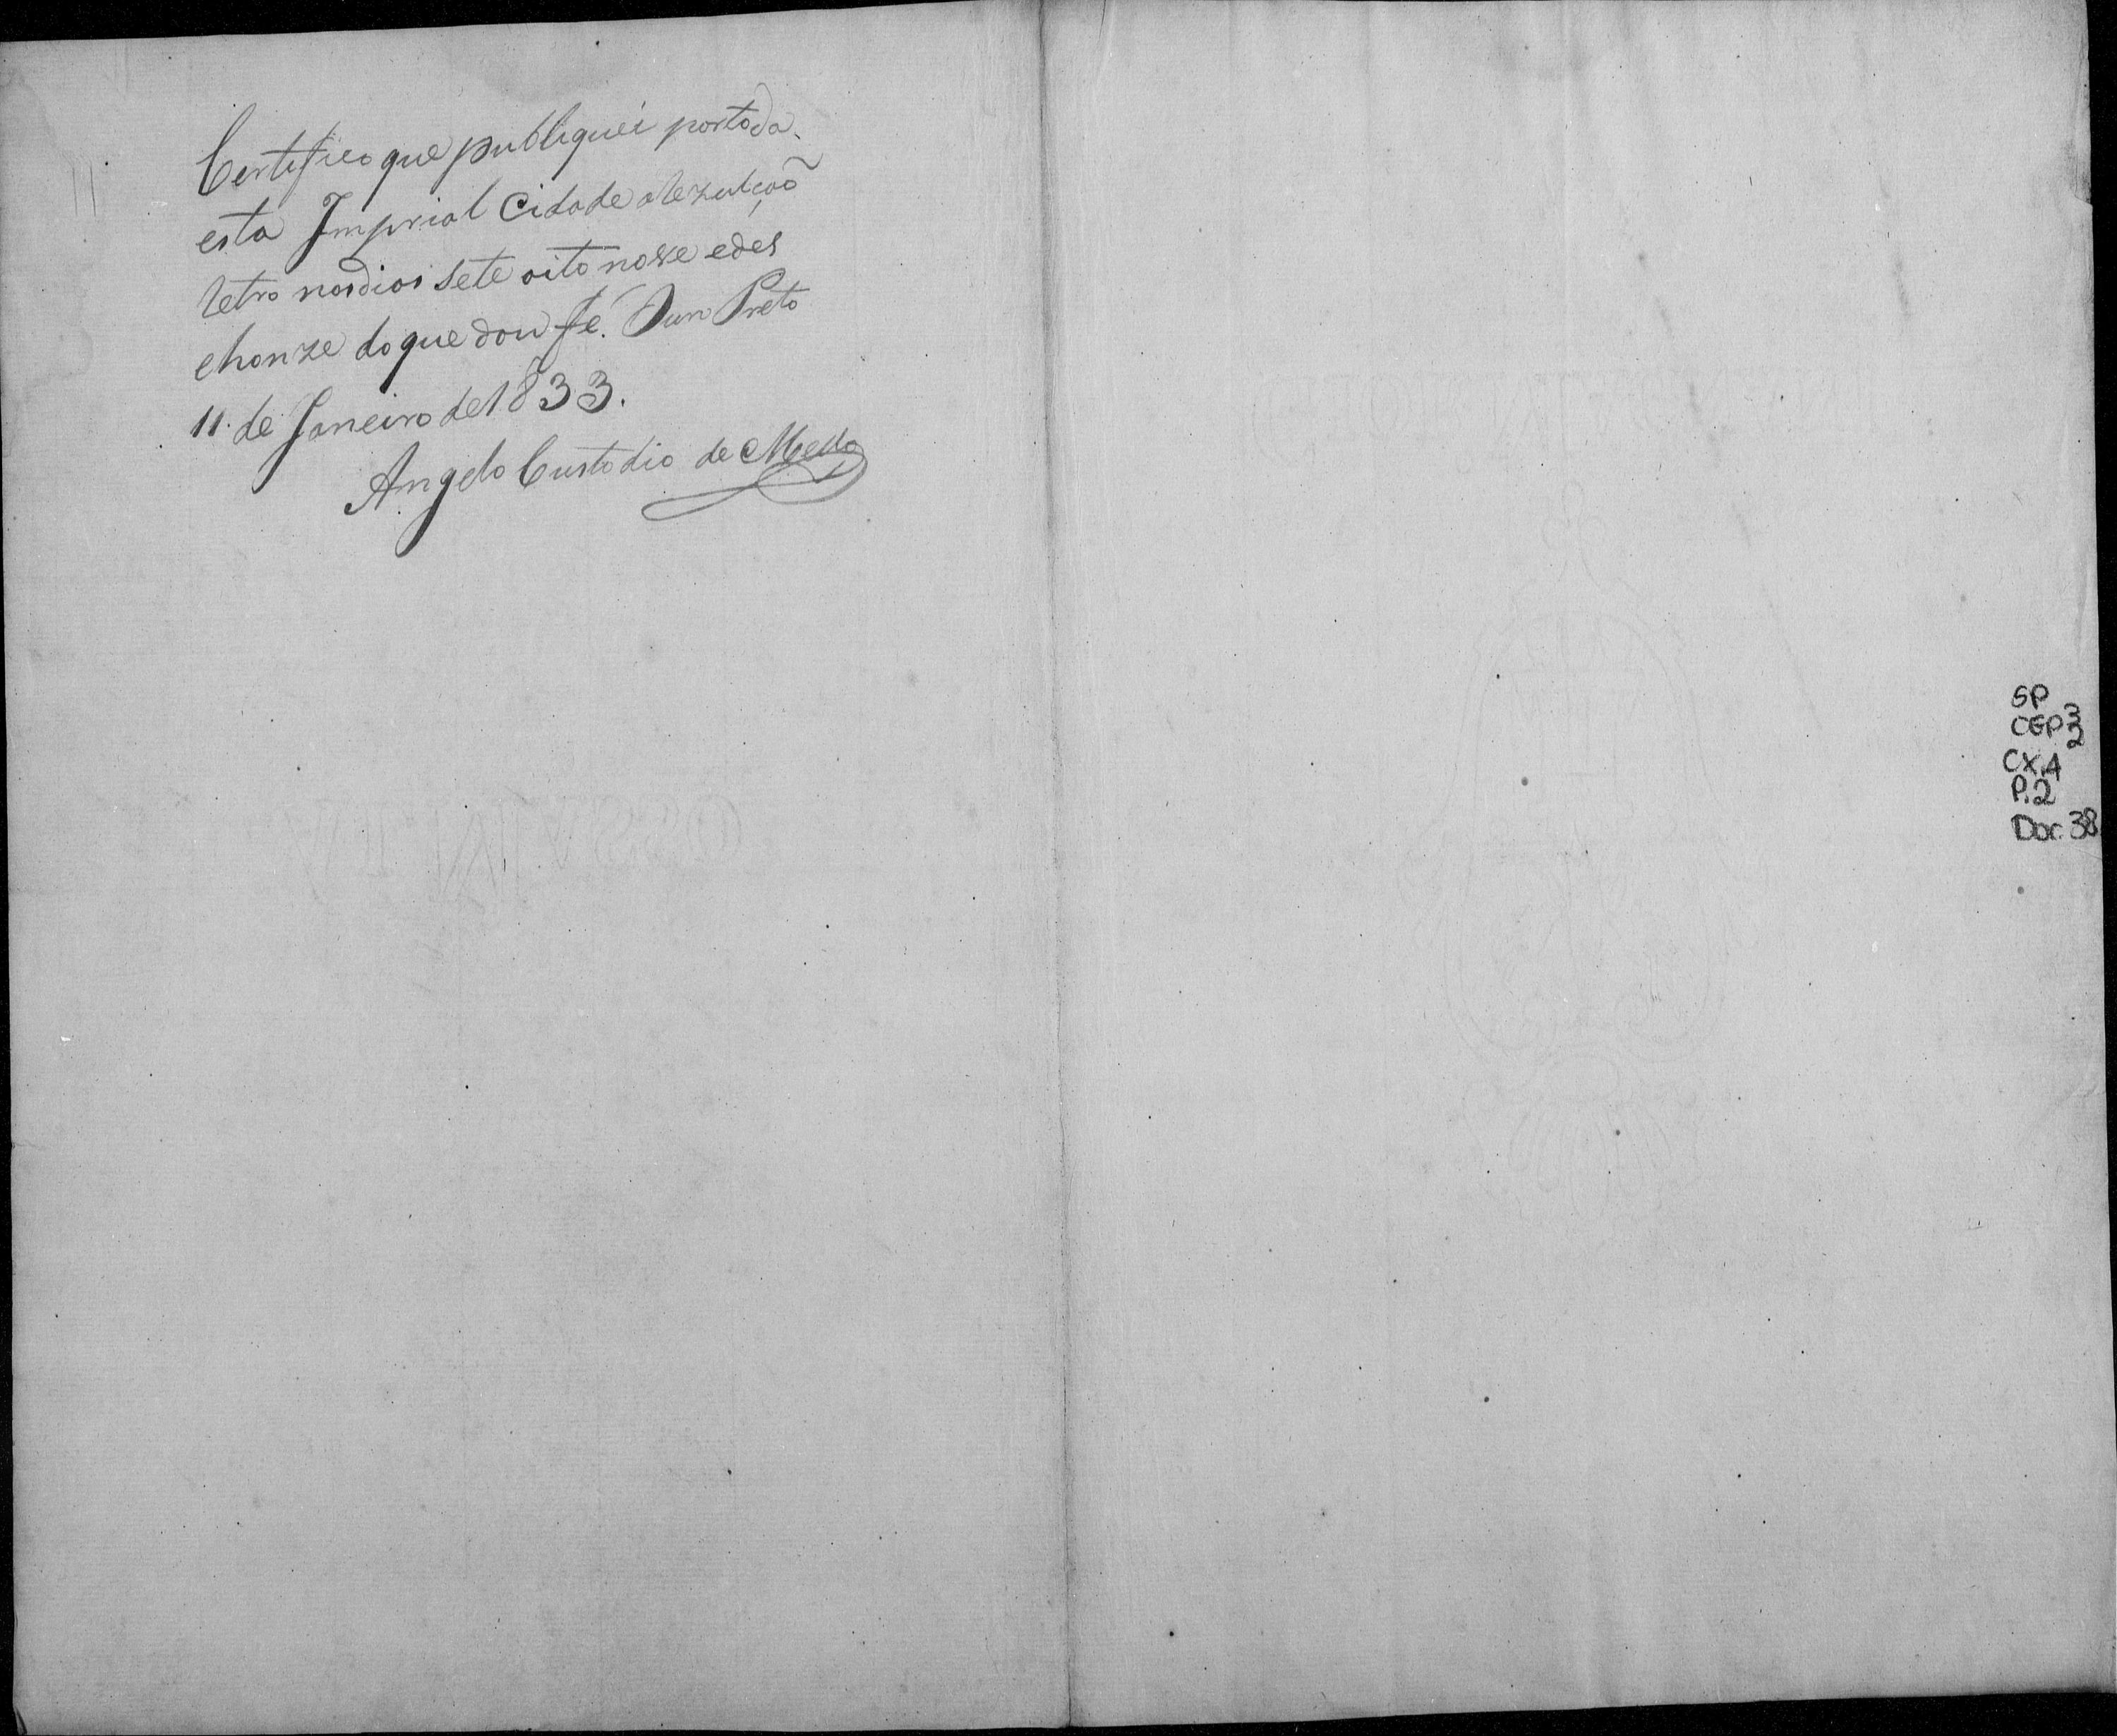 Certifico que publiquei portoda
esta Imprial Cidade arezulçaõ
retro nosdias sete oito nove edes
ehonze doque dou fé. Ouro Preto
11. de Janeiro de 1833.
Angelo Custodio de Mello
SP
CGP 3/2
CX.4
P.2
Doc. 38